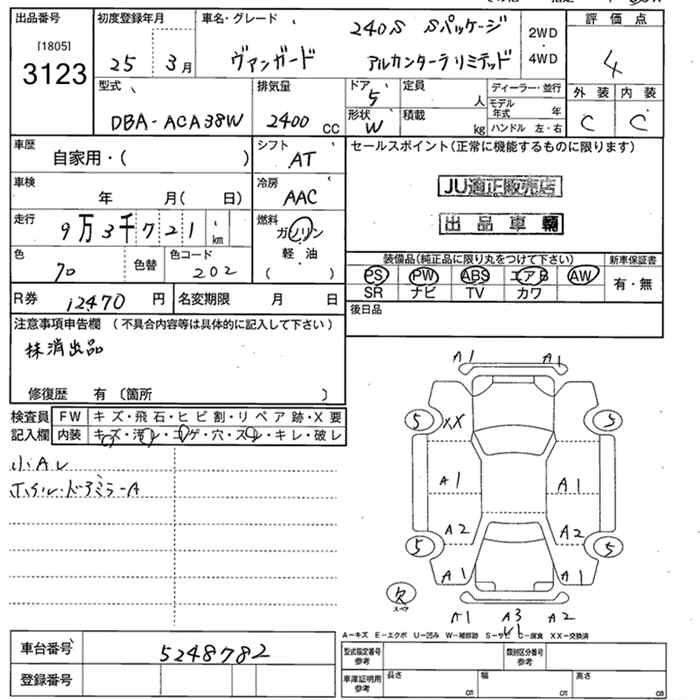 出品番号
[1805]
3123
初度登録年月
25 3月
車名・グレード
240S Sパッケージ
ヴァンガード アルカンターラリミテッド
2WD
4WD
評価点
4
外装 内装
C C
型式
DBA-ACA38W
排気量
2400 CC
ドア
5
形状
W
定員
人
積載
kg
ディーラー・並行
モデル年式 年
ハンドル 左・右
車歴
自家用・( )
シフト
AT
車検
年 月( 日)
冷房
AAC
走行
9万3千721 km
燃料
ガソリン
軽・油
( )
色
70
色替
色コード
202
R券 12470 円
名変期限 月 日
セールスポイント(正常に機能するものに限ります)
JU適正販売店
出品車輌
装備品(純正品に限り丸をつけて下さい)
新車保証書
PS PW ABS エアB AW
SR ナビ TV カワ
有・無
後日品
注意事項申告欄 (不具合内容等は具体的に記入して下さい)
抹消出品
修復歴 有(箇所 )
検査員記入欄
FW キズ・飛石・ヒビ割・リペア跡・X要
内装 キズ・汚レ・コゲ・穴・スレ・キレ・破レ
小AU
ホイル・ドアミラーA
A1 A1
5 XX 5
A1 A1
A2 A2
5 5
A1 A1
欠
スペア
A1 A3 A2
U1
A-キズ E-エクボ U-凹み W-補修跡 S-サビ C-腐食 XX-交換済
車台番号 5248782
登録番号
型式指定番号 参考
類別区分番号 参考
車庫証明用 参考
長さ cm
幅 cm
高さ cm